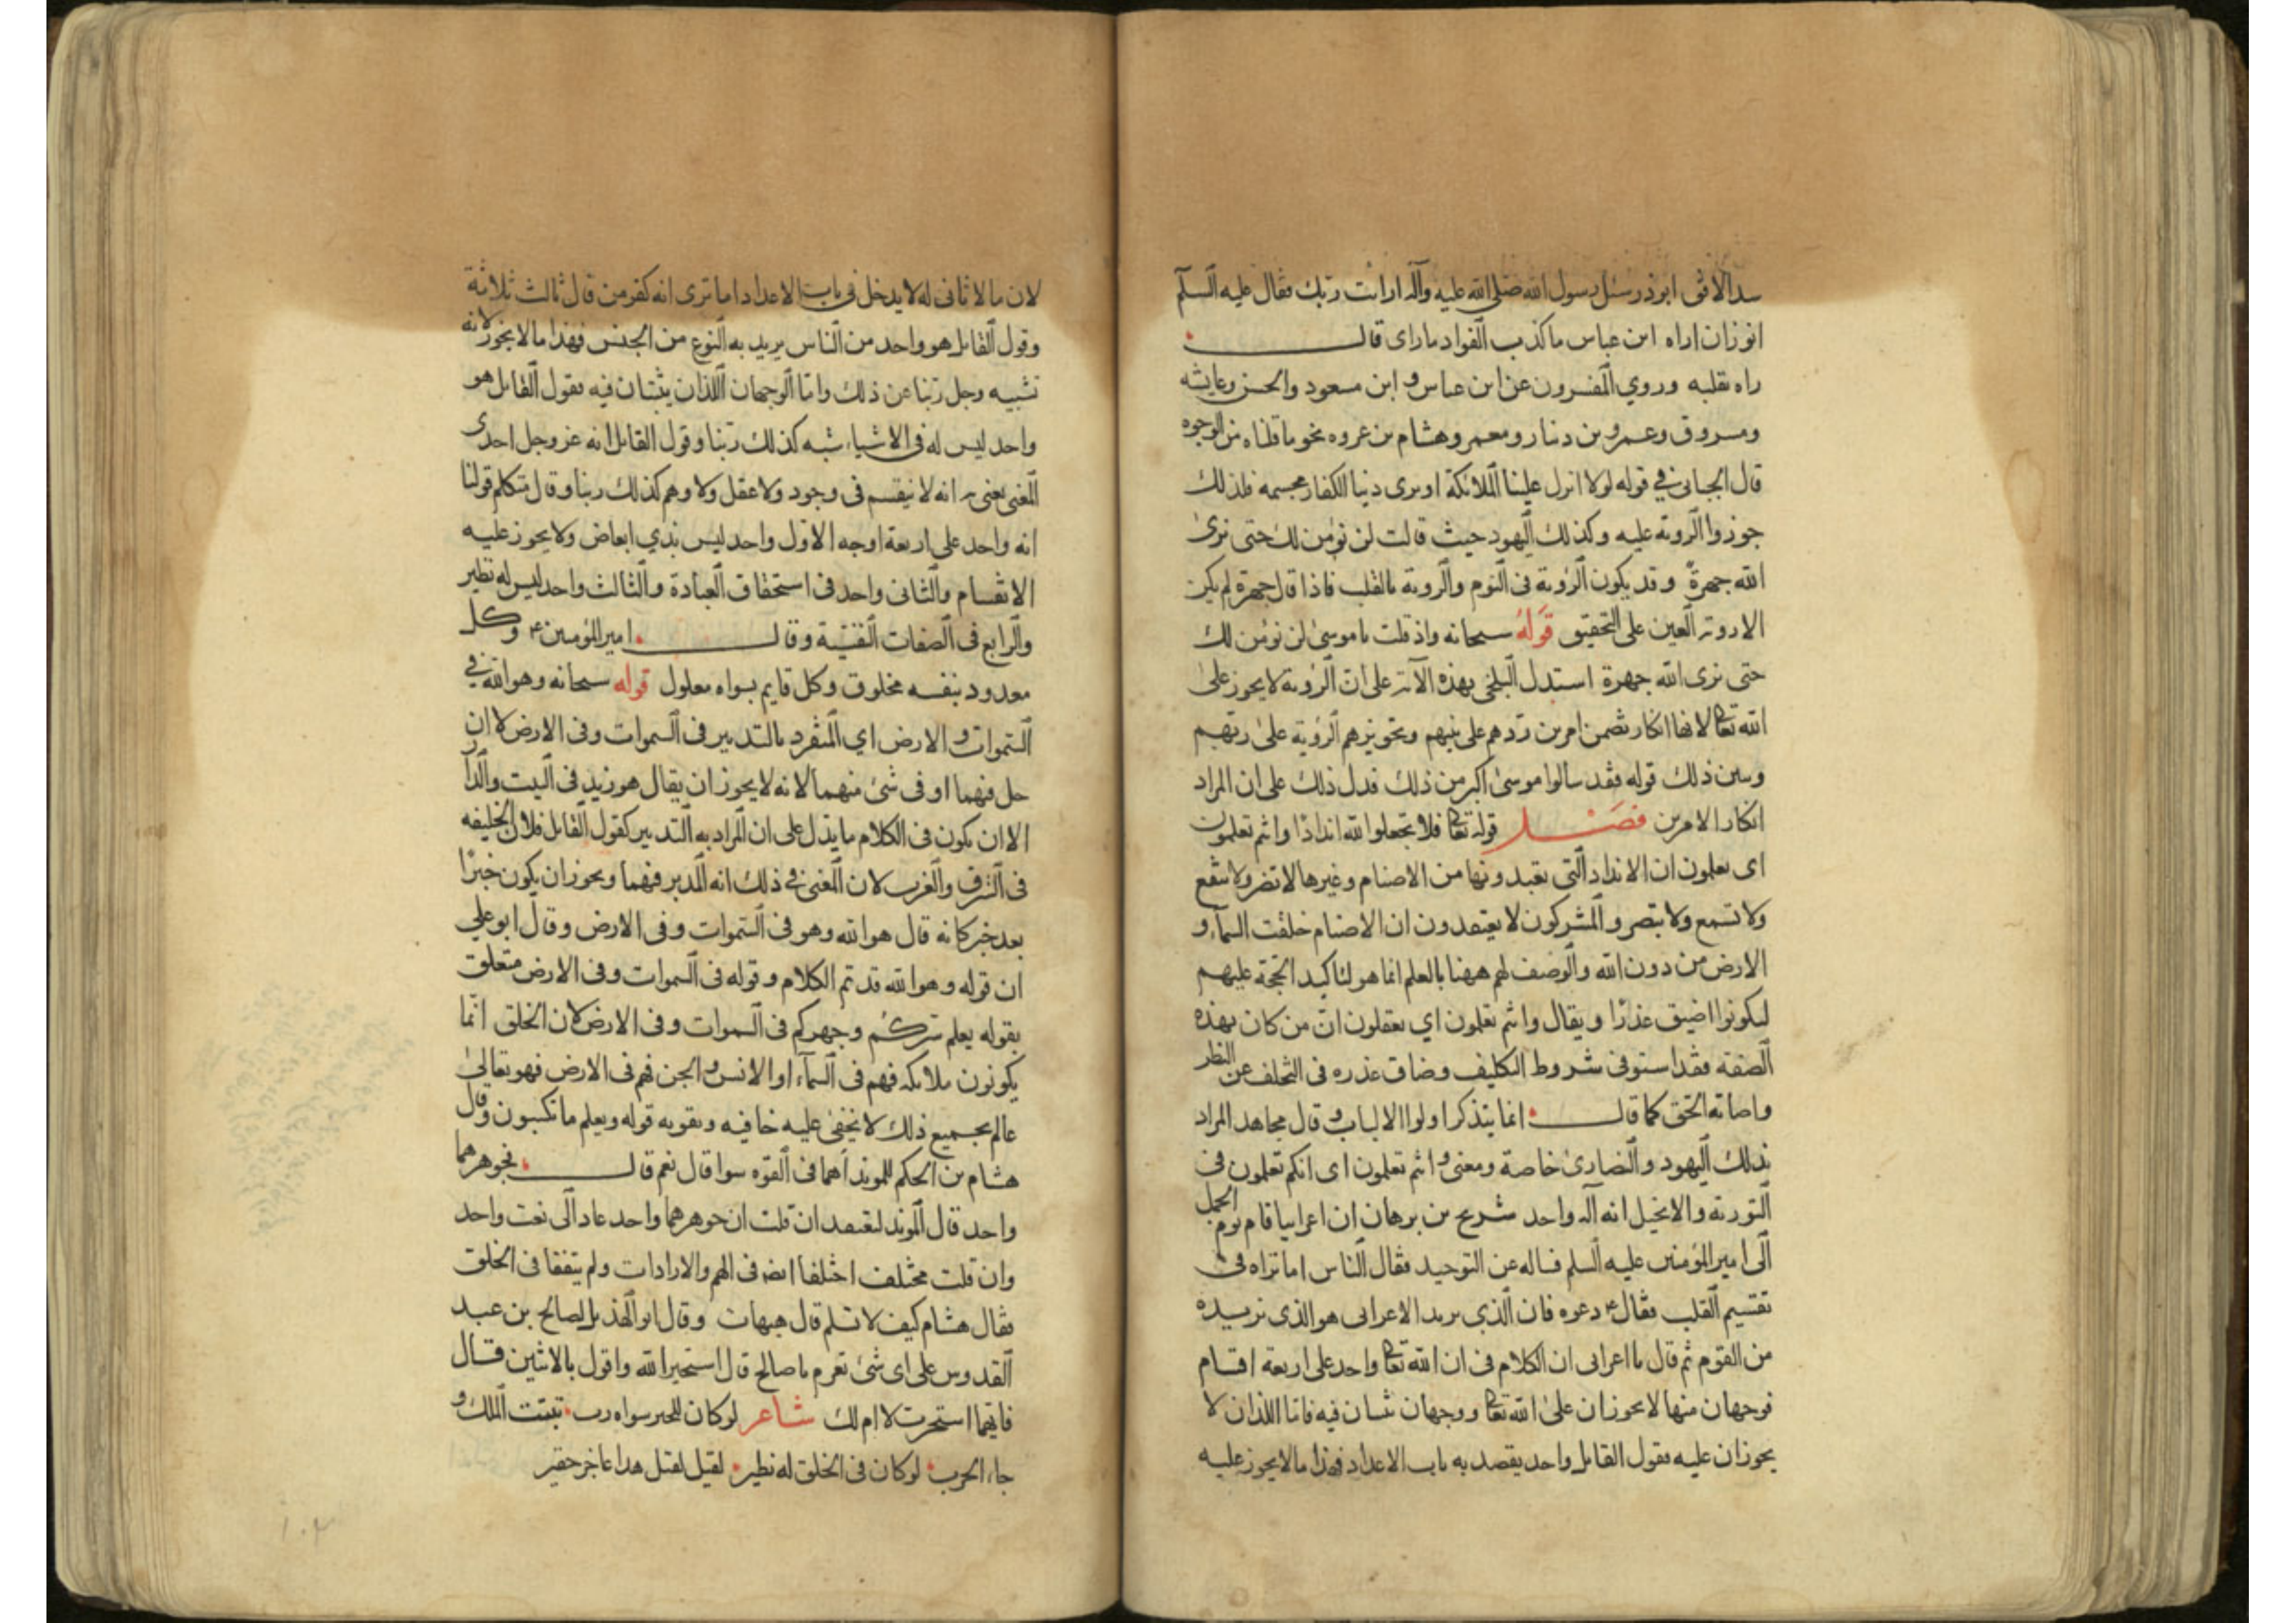 سد الافق ابوذر سئل رسول الله صلى الله عليه وآله ارايت ربك فقال عليه السلم
انوزان اراه ابن عباس ما كذب الفواد ما راى قال
راه بقلبه وروي المفسرون عن ابن عباس و ابن مسعود والحسن وعايشه
ومسروق وعمرو بن دينار ومعمر وهشام بن عروه نحو ما قلناه من الوجوه
قال الجبائي في قوله لولا انزل علينا الملائكة او نرى ربنا الكفار مجسمه فلذلك
جوزوا الروية عليه وكذلك اليهود حيث قالت لن نؤمن لك حتى نرى
الله جهرة وقد يكون الرؤية في النوم والروية بالقلب فاذا قال جهرة لم يكن
الا روية العين على التحقيق قوله سبحانه واذ قلت يا موسى لن نؤمن لك
حتى نرى الله جهرة استدل البلخي بهذه الآية على ان الرؤية لا يجوز على
الله تعالى لانها انكار تضمن امرين ردهم على نبيهم وتجويزهم الرؤية على ربهم
وبين ذلك قوله فقد سالوا موسى اكبر من ذلك فدل ذلك على ان المراد
انكار الامرين فصل قوله تعالى فلا تجعلوا لله اندادا وانتم تعلمون
اى يعلمون ان الانداد التي تعبدونها من الاصنام وغيرها لا تضر ولا تنفع
ولا تسمع ولا تبصر والمشركون لا يعتقدون ان الاصنام خلقت السماء و
الارض من دون الله والوصف لهم ههنا بالعلم انما هو لتاكيد الحجة عليهم
ليكونوا اضيق عذرا ويقال وانتم تعلمون اي تعقلون ان من كان بهذه
الصفة فقد استوفى شروط التكليف وضاق عذره فى التخلف عن النظر
واصابة الحق كما قال انما يتذكر اولوا الالباب وقال مجاهد المراد
بذلك اليهود والنصارى خاصة ومعنى وانتم تعلمون اى انكم تعلمون فى
التورية والانجيل انه اله واحد شريح بن برهان ان اعرابيا قام يوم الجمل
الى امير المؤمنين عليه السلم فساله عن التوحيد فقال الناس اما تراه فى
تقسيم القلب فقال ع دعوه فان الذي يريد الاعرابى هو الذى نريده
من القوم ثم قال يا اعرابى ان الكلام فى ان الله تعالى واحد على اربعة اقسام
فوجهان منها لا يجوزان على الله تعالى ووجهان يثبتان فيه فاما اللذان لا
يجوزان عليه فقول القايل واحد يقصد به باب الاعداد فهذا ما لا يجوز عليه
لان ما لا ثانى له لا يدخل فى باب الاعداد اما ترى انه كفر من قال ثالث ثلاثة
وقول القايل هو واحد من الناس يريد به النوع من الجنس فهذا ما لا يجوز لانه
تشبيه وجل ربنا عن ذلك واما الوجهان اللذان يثبتان فيه فقول القايل هو
واحد ليس له فى الاشياء شبه كذلك ربنا وقول القايل انه عز وجل احدى
المعنى يعنى به انه لا ينقسم فى وجود ولا عقل ولا وهم كذلك ربنا وقال متكلم قولنا
انه واحد على اربعة اوجه الاول واحد ليس بذي ابعاض ولا يجوز عليه
الانقسام والثانى واحد فى استحقاق العبادة والثالث واحد ليس له نظير
والرابع فى الصفات النفسية وقال امير المؤمنين ع وكل
معدود بنفسه مخلوق وكل قايم بسواه معلول قوله سبحانه وهو الله في
السموات و الارض اي المنفرد بالتدبير فى السموات وفى الارض لا ان
حل فيهما او فى شئ منهما لانه لا يجوز ان يقال هو زيد فى البيت والدار
الا ان يكون فى الكلام ما يدل على ان المراد به التدبير كقول القايل فلان الخليفه
فى الشرق والغرب لان المعنى في ذلك انه المدبر فيهما ويجوز ان يكون خبرا
بعد خبر كانه قال هو الله وهو فى السموات وفى الارض وقال ابو علي
ان قوله وهو الله قد تم الكلام وقوله فى السموات وفى الارض متعلق
بقوله يعلم سركم وجهركم فى السموات وفى الارض لان الخلق انما
يكونون ملايكه فهم فى السماء او الانس و الجن فهم فى الارض فهو تعالى
عالم بجميع ذلك لا يخفى عليه خافيه ويقويه قوله ويعلم ما تكسبون وقال
هشام بن الحكم للموبذ اهما فى القوه سوا قال نعم قال فجوهرهما
واحد قال الموبذ لنفسه ان قلت ان جوهرهما واحد عاد الى نعت واحد
وان قلت مختلف اختلفا ايضا فى الهم والارادات ولم يتفقا فى الخلق
فقال هشام كيف لا تسلم قال هيهات وقال ابو الهذيل لصالح بن عبد
القدوس على اى شئ تعزم يا صالح قال استخير الله واقول بالاثنين قال
فايهما استخرت لا ام لك شاعر لو كان للخير سواه رب تبتت الملك و
جاء الحرب لو كان فى الخلق له نظير لقيل هذا عاجز حقير